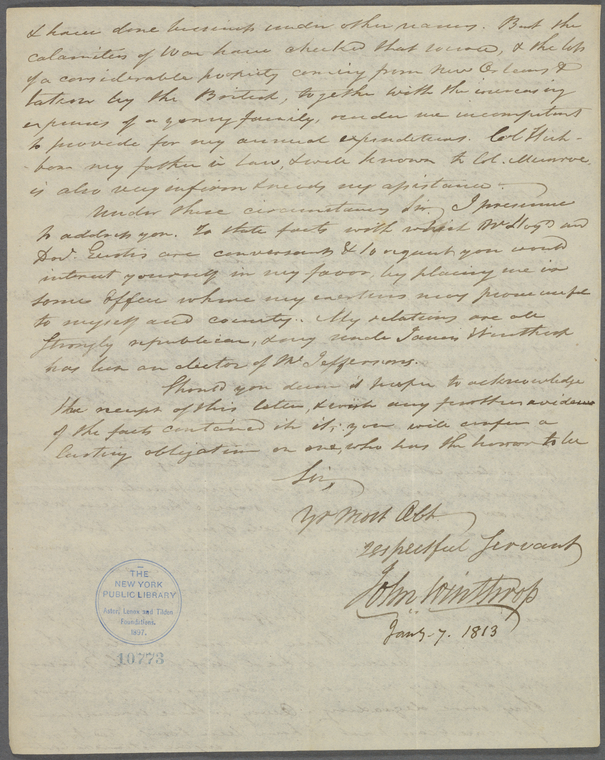 & have done business under other names. But the
calamities of War have checked that source, & the loss
of a considerable property coming from New Orleans &
taken by the British, together with the increasing
expenses of a young family, render me incompetent
to provide for my annual expenditures. Col
my father in law, & well known to Col. Munroe
is also very infirm & needs my assistance.
Under these circumstances Sir, I presume
to address you. To state facts with which Mr and
Doct. Eustis are conversant & to request you would
interest yourself in my favor, by placing me in
some Office where my exertions may prove useful
to myself and country. My relations are all
strongly republican, & my uncle James Winthrop
has been an elector of Mr Jeffersons.
Should you deem it proper to acknowledge
the receipt of this letter, & wish any further evidence
of the facts contained in it, you will confer a
lasting obligation on one, who has the honor to be
Sir,
Yr Most Obt
respectful Servant
John Winthrop
Jany. 7. 1813
THE
NEW YORK
PUBLIC LIBRARY
Astor, Lenox and Tilden
Foundations.
1897.
10773